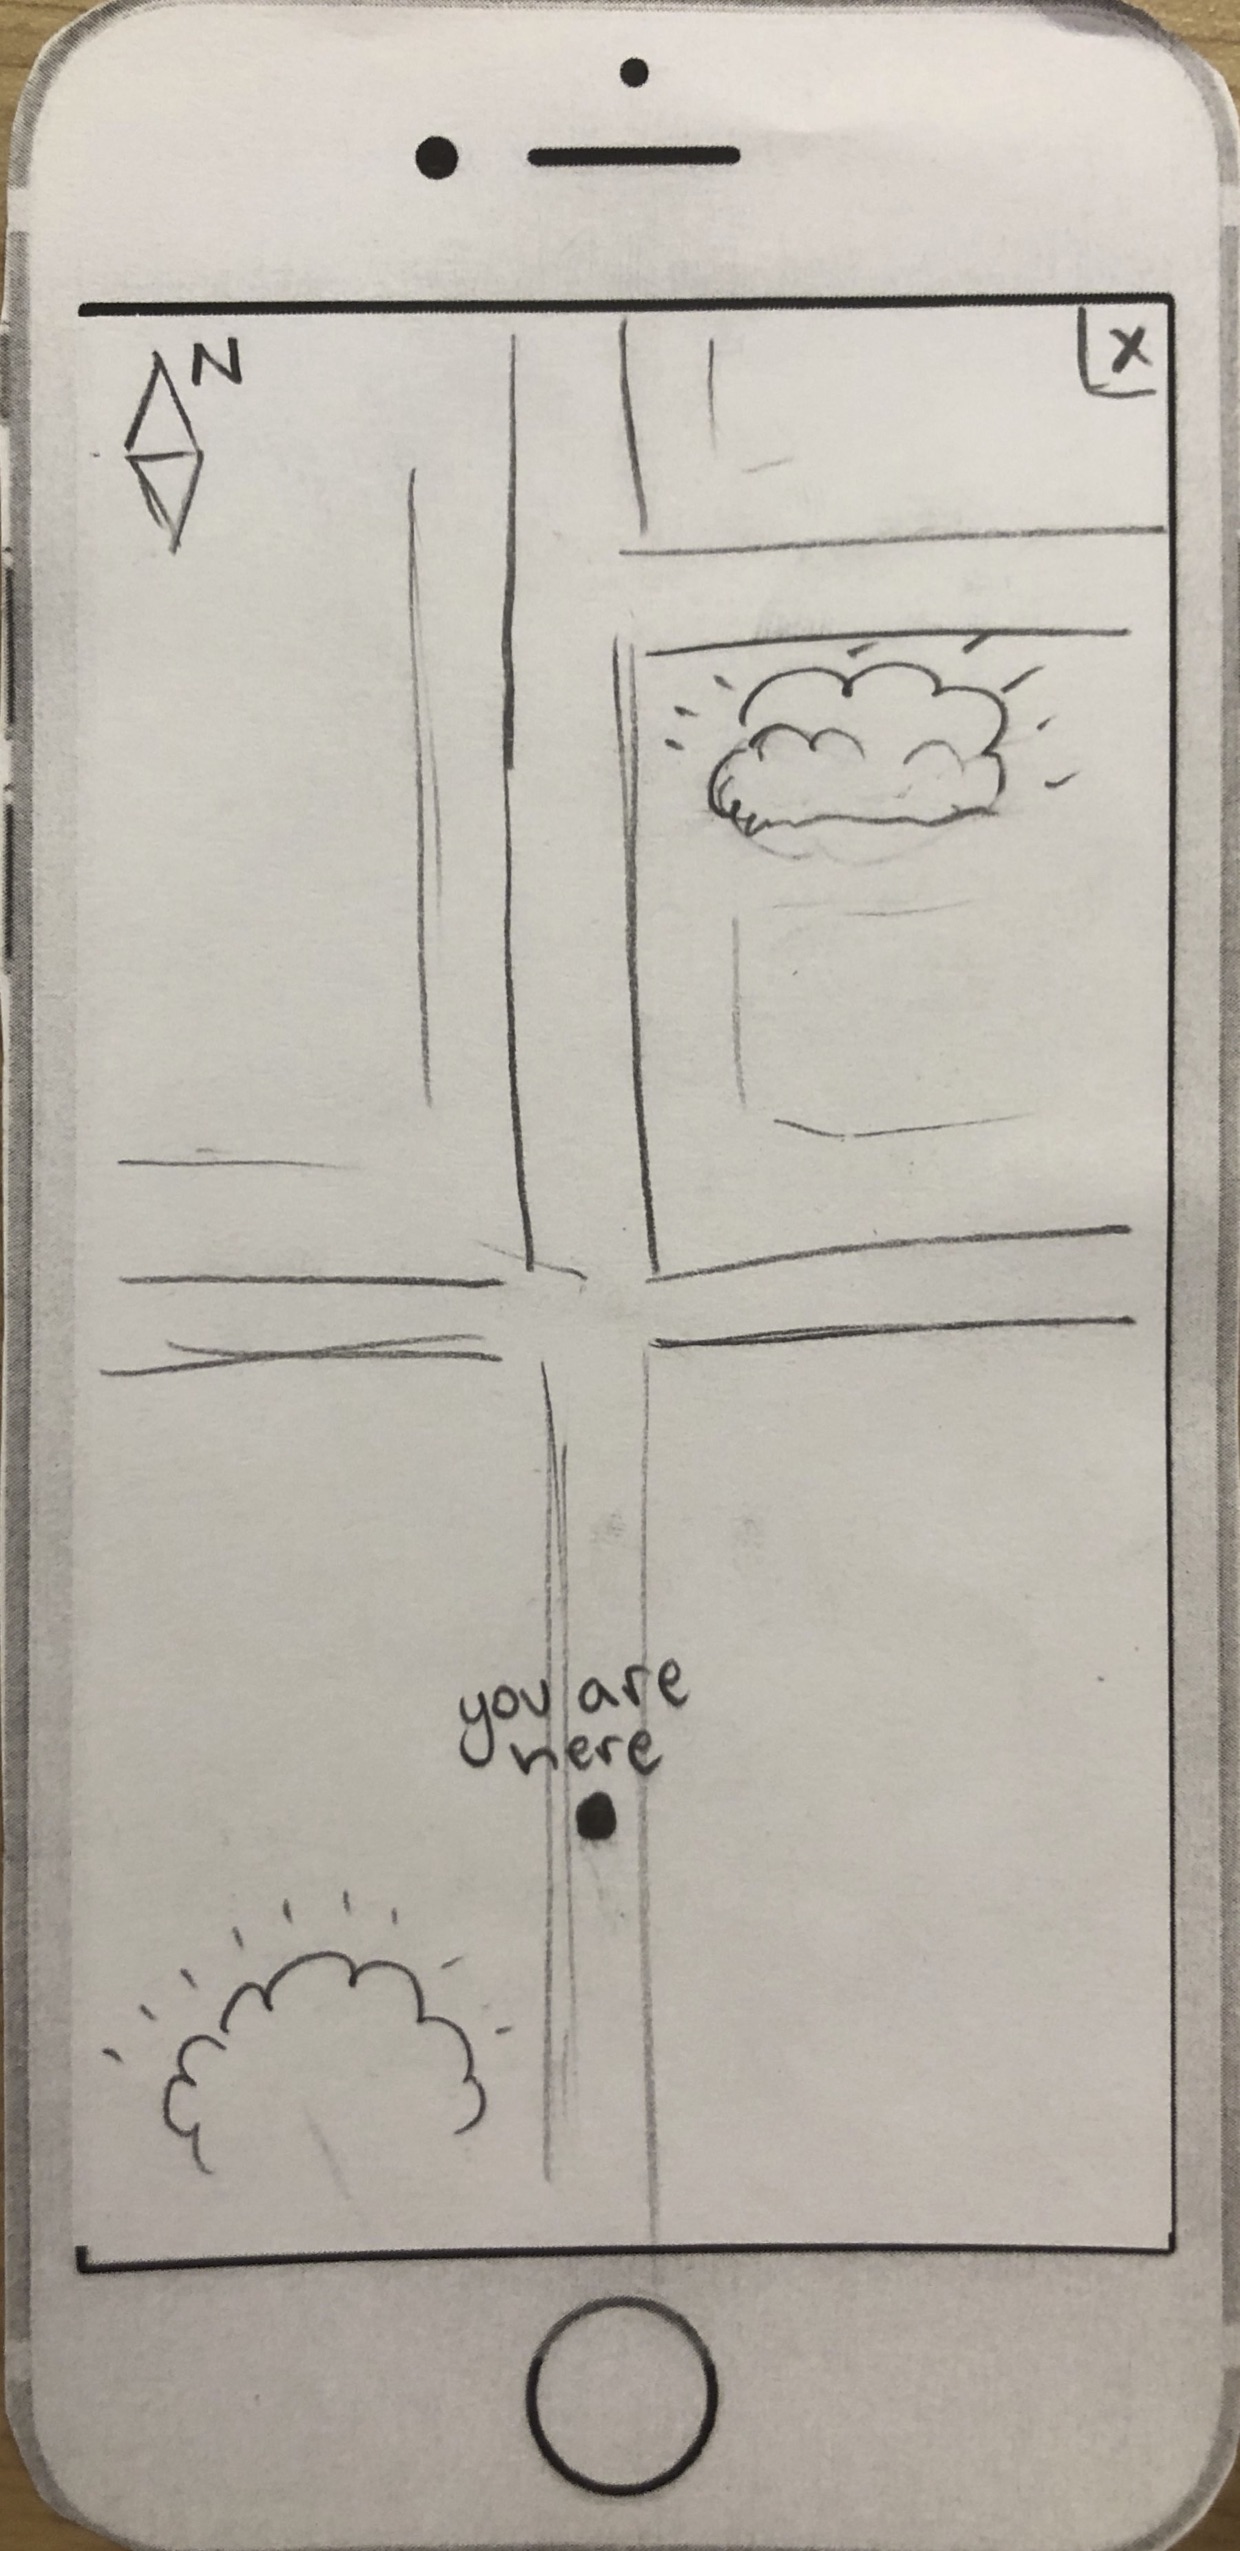 N
X
you are
here